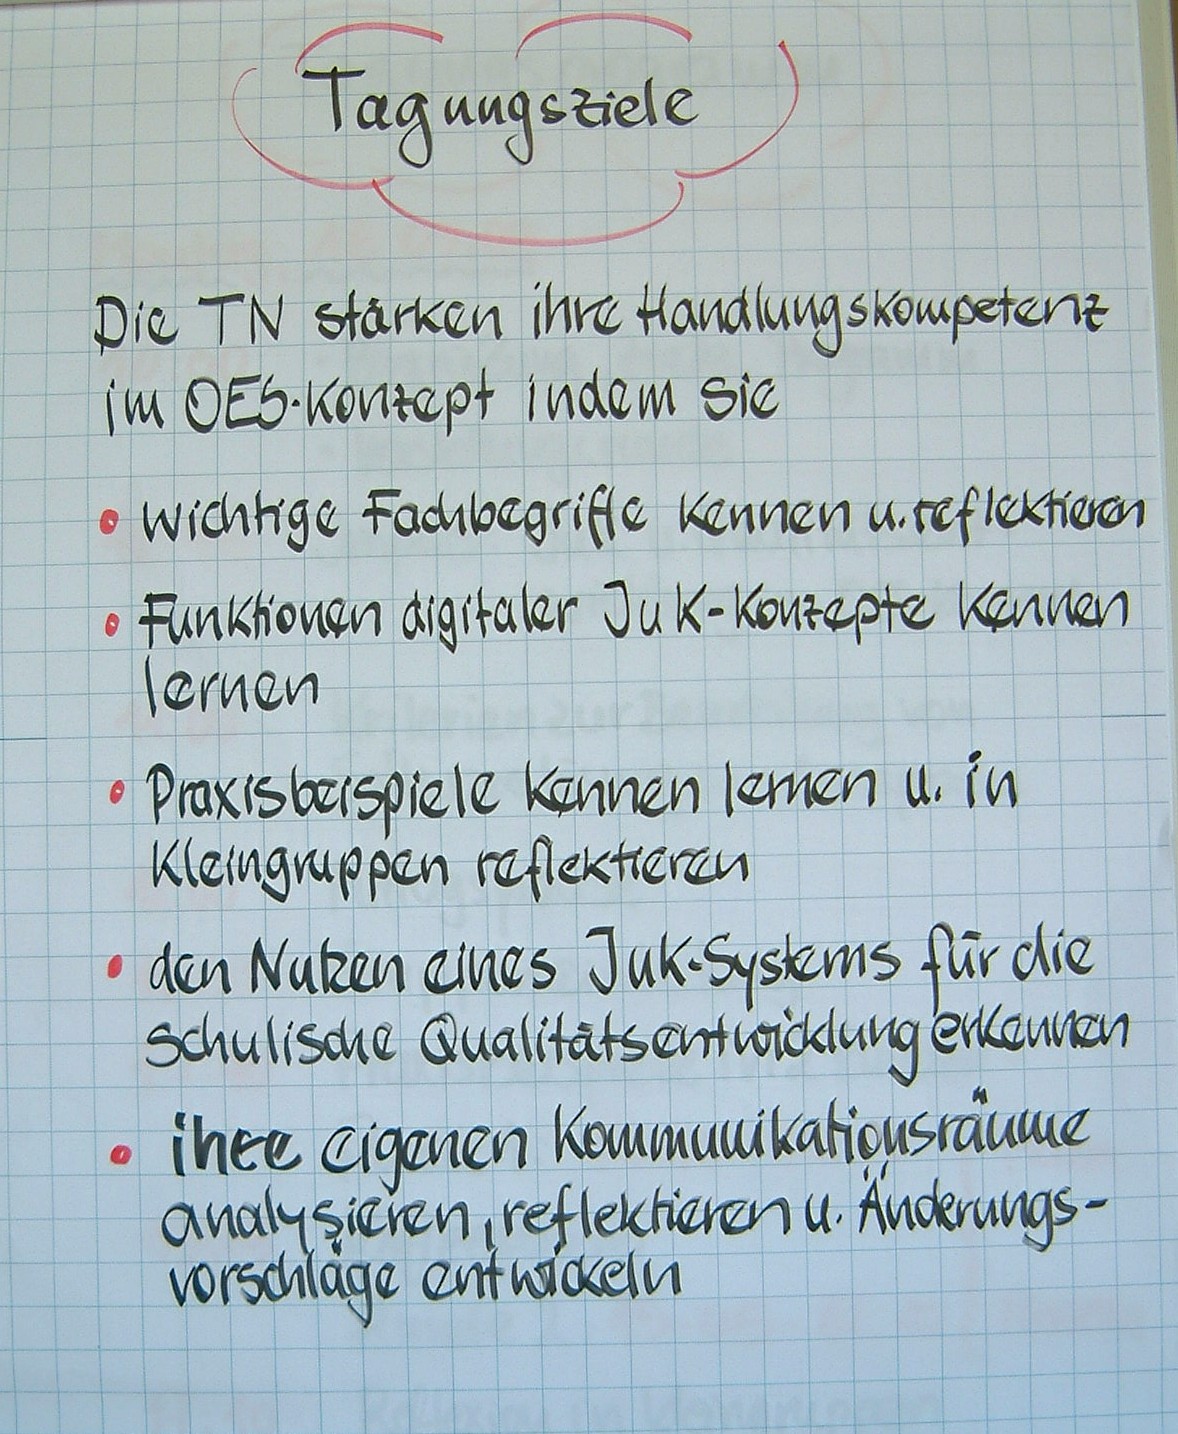 Tagungsziele
Die TN stärken ihre Handlungskompetenz
im OES-Konzept indem sie
• wichtige Fachbegriffe kennen u. reflektieren
• Funktionen digitaler JuK-Konzepte kennen
lernen
• Praxisbeispiele kennen lernen u. in
Kleingruppen reflektieren
• den Nutzen eines JuK-Systems für die
schulische Qualitätsentwicklung erkennen
• ihre eigenen Kommunikationsräume
analysieren, reflektieren u. Änderungs-
vorschläge entwickeln